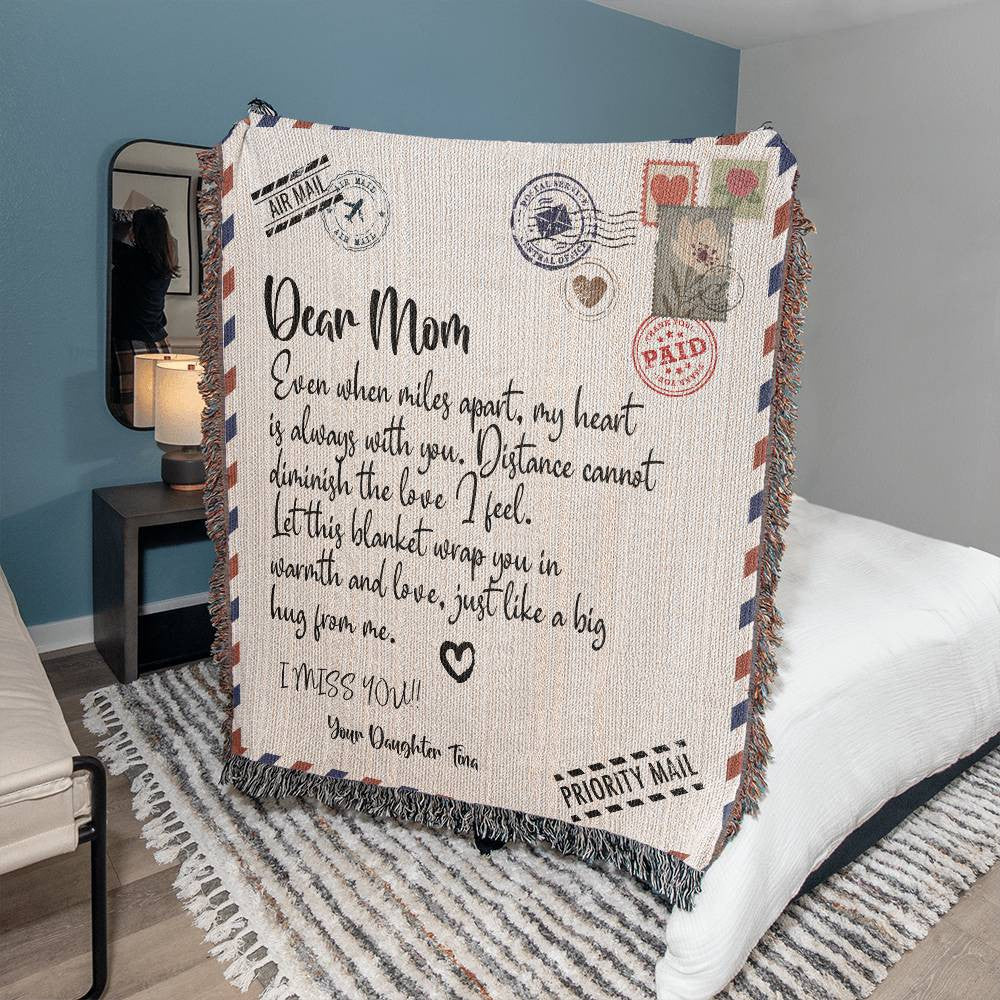 AIR MAIL
AIR MAIL
AIR MAIL
POSTAL
PAID
Dear Mom
Even when miles apart, my heart
is always with you. Distance cannot
diminish the love I feel.
Let this blanket wrap you in
warmth and love, just like a big
hug from me.
I MISS YOU!!
Your Daughter Tina
PRIORITY MAIL